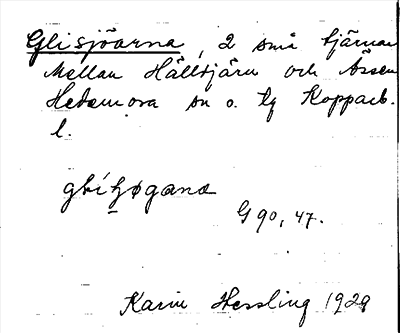 Glisjöarna, 2 små tjärnar
Mellan Hälltjärn och Åssen
Hedemora sn o. tg Kopparb.
l.
G 90, 47.
Karin Hessling 1929